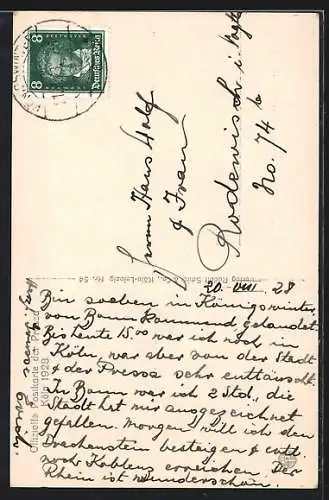 8 8
Deutsches Reich
Herrn Hans Wolf
& Frau
Rodewisch i. Vogtl.
No. 74 b
Köln-Leipzig Nr. 54
20. VIII. 28
Bin soeben in Königswinter
von Bonn kommend, gelandet.
Bis heute 15.00 war ich noch in
Köln, war aber von der Stadt
& der Pressa sehr enttäuscht.
In Bonn war ich 2 Std., die
Stadt hat mir ausgezeichnet
gefallen. Morgen will ich den
Drachenstein besteigen & evtl.
noch Koblenz erreichen. Der
Rhein ist wunderschön.
Offizielle Postkarte der Pressa
Köln 1928
Erich